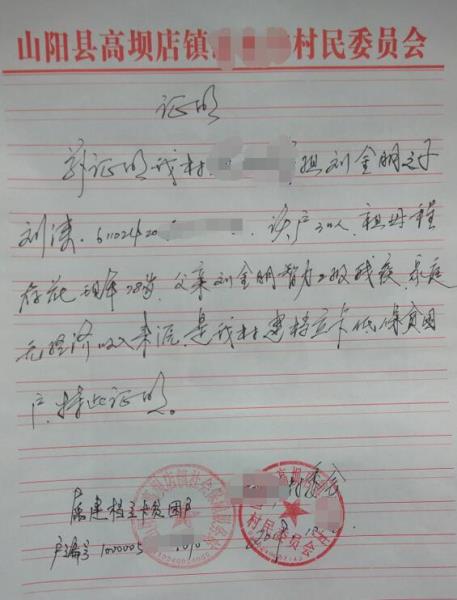 山阳县高坝店镇 村民委员会
证明
兹证明我村 组刘金朋之子
刘涛.61102420 该户3口人,祖母程
存花 现年78岁,父亲刘金朋智力二级残疾,家庭
无经济收入来源,是我村建档立卡低保贫困
户,特此证明。
属建档立卡贫困户
户编号 1000005 1010